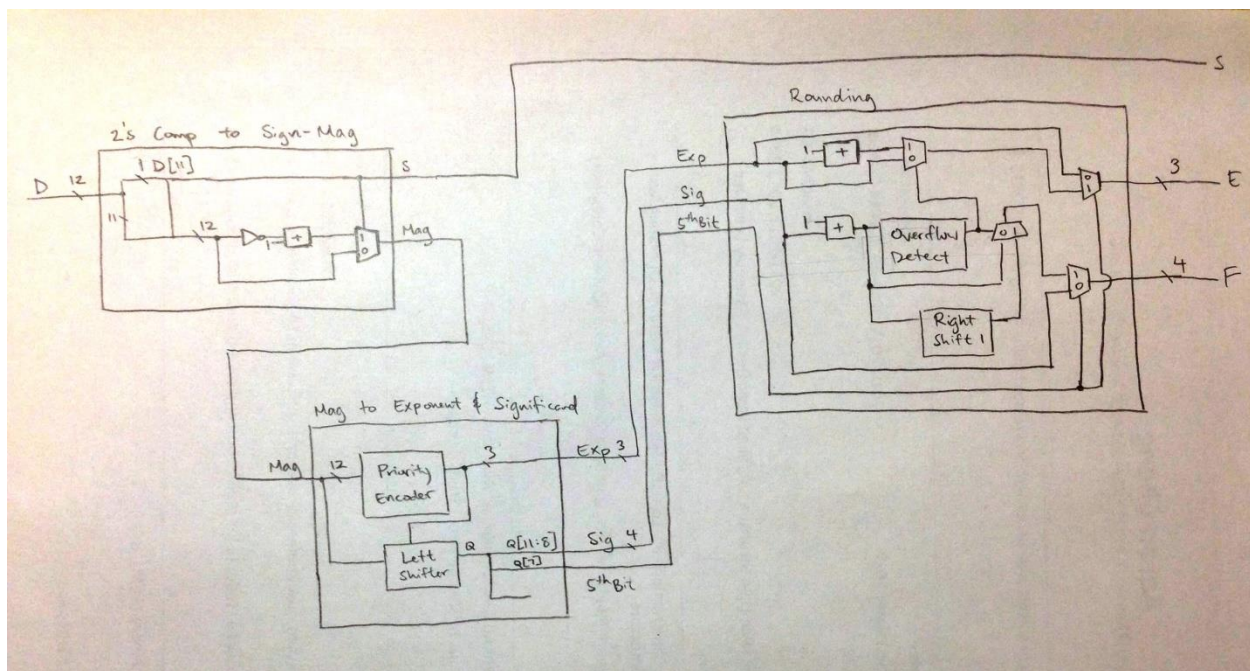 S
Rounding
2's Comp to Sign-Mag
D 12
1 D[11]
S
11
12
1 +
1
0
Mag
Exp
1 +
1
0
0
1
3 E
Sig
5th Bit
1 +
Overflow
Detect
0 1
1
0
4 F
Right
Shift 1
Mag to Exponent & Significand
Mag 12
Priority
Encoder
3
Exp 3
Left
Shifter
Q
Q[11:8]
Sig 4
Q[7]
5th Bit